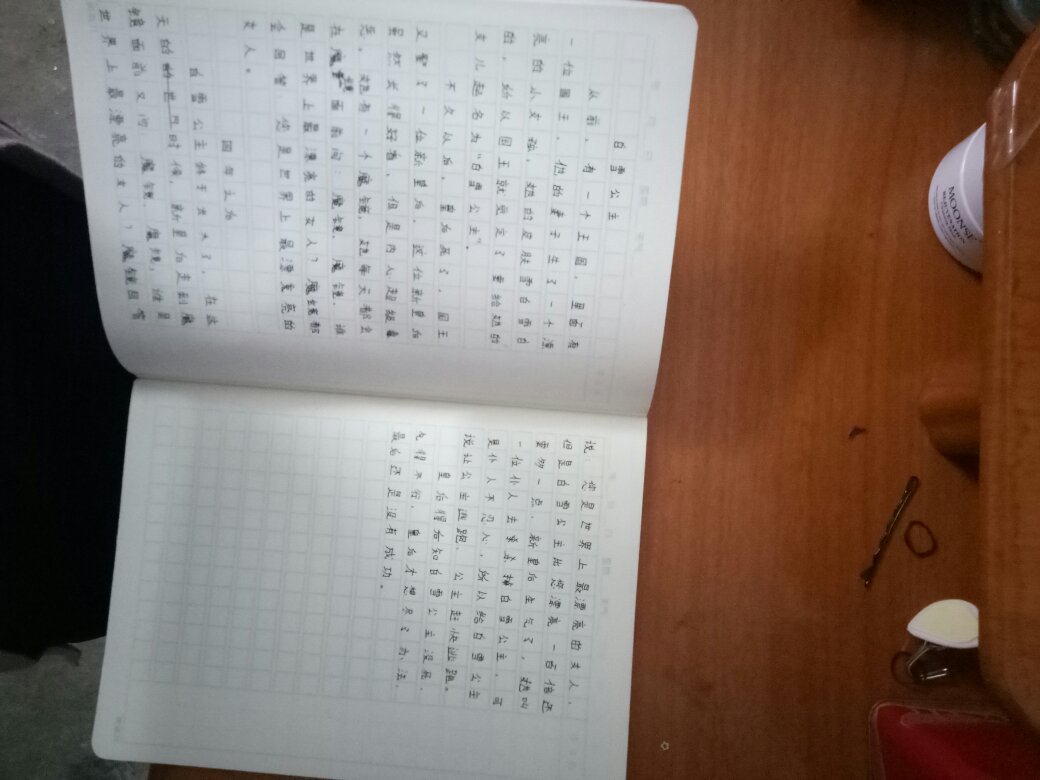 白雪公主
从前，有一个王国，里面有
一位国王，他的妻子生了一个漂
亮的小女孩，她的皮肤雪白雪白
的，所以国王就更定了要给她的
女儿起名为“白雪公主”。
不久以后，皇后死了，国王
又娶了一位新皇后，这位新皇后
虽然长得好看，但是内人超级毒
恶，她有一个魔镜，她每天都会
在魔镜面前问：魔镜，魔镜，谁
是世界上最漂亮的女人？魔镜都
会回答，您是世界上最漂亮的
女人。
四年之后
白雪公主终于长大了，在这
天的时候，新皇后走到魔
镜面前又问，魔镜，魔镜，谁是
世界上最漂亮的女人？魔镜回答
说：您是世界上最漂亮的女人，
但是白雪公主比您漂亮一百倍还
要多一点，新皇后生气了，她叫
一位仆人去杀掉白雪公主，可
是仆人不忍心，所以给白雪公主
说让公主逃跑，公主赶快逃跑。
皇后得后知白雪公主没死，
气得不行，皇后才想尽了办法，
最后还是没有成功。
MOONSE